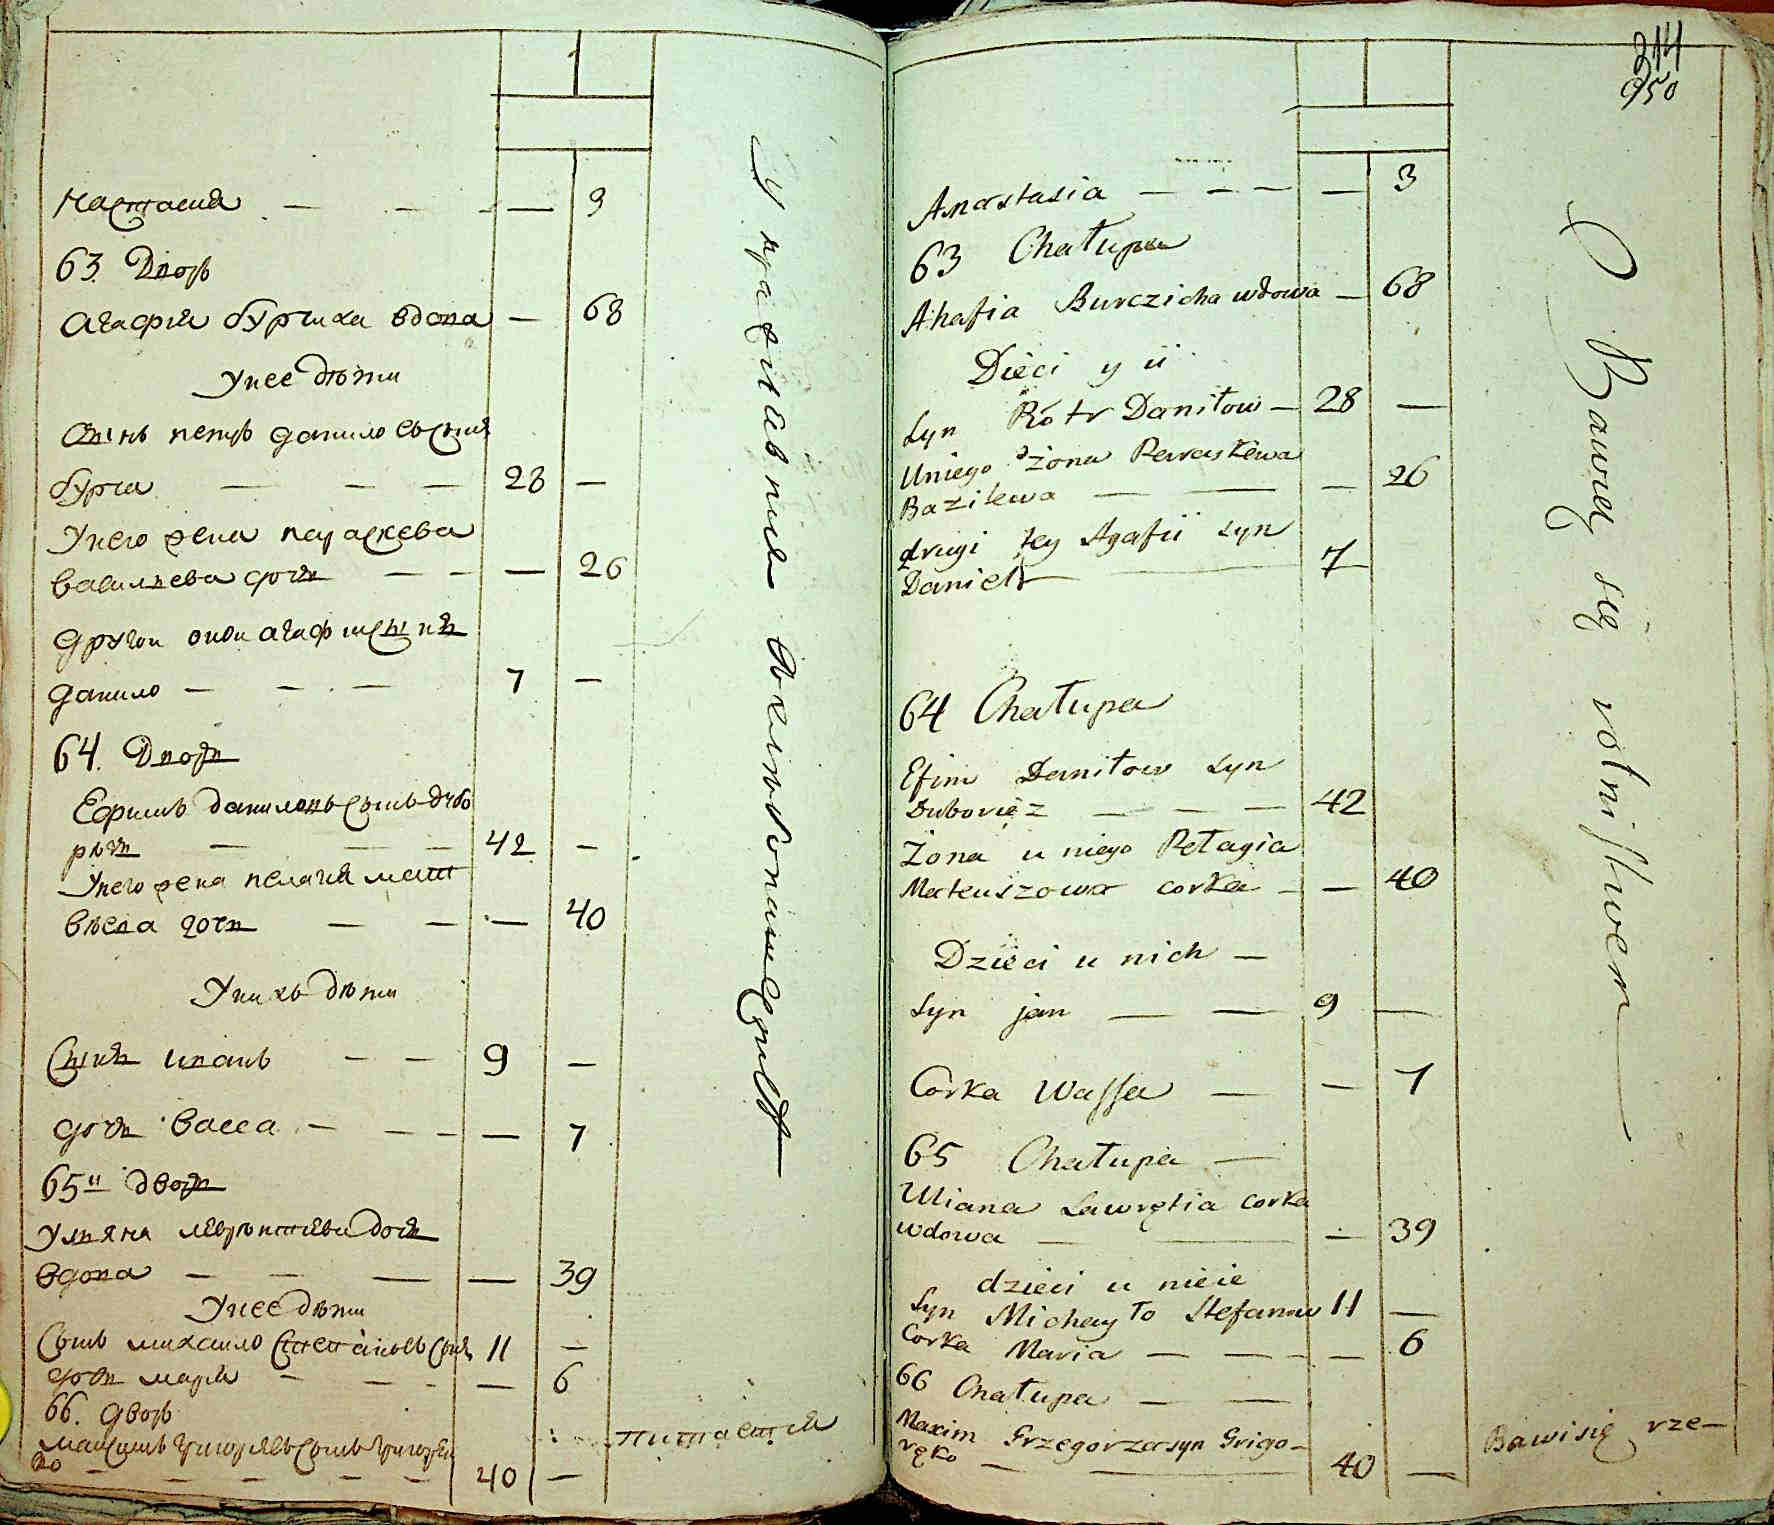 Настасия — — — — 3
63. Дворъ
Агафия Бурчиха вдова — 68
У нее дѣти
Сынъ Петръ Данилоъ сынъ
Бурча — — — 28 —
У него жена Параскева
Васильева дочь — — — 26
Другои оной Агафи сынъ
Данило — — — 7 —
64. Дворъ
Ефимъ Даниловъ сынъ Дубо
— — — 42 —
У него жена Пелагия Мат
вѣева дочь — — — 40
У нихъ дѣти
Сынъ Иванъ — — 9 —
дочь Васса — — — — 7
65й дворъ
Ульяна Лаврѣнтиева дочь
вдова — — — — 39
У нее дѣти
Сынъ Михаило Степановъ сынъ 11 —
дочь Мария — — — — 6
66. дворъ
Максимъ Григориевъ сынъ Григорен
ко — — — — — 40 —
Упражнѣние
питается
214
950
Anastasia — — — — 3
63 Chałupa
Ahafia Burczicha wdowa — 68
Dieci y ii
Syn Piotr Daniłow — 28 —
Uniego żona Paraskewa
Bazilewa — — — 26
drugi tey Agafii syn
Danieł — — 7
64 Chałupa
Efim Daniłow syn
Dubowicz — — — 42
Żona u niego Pełagia
Mateuszowa corka — — 40
Dzieci u nich —
Syn jan — — 9 —
Corka Wassa — — 7
65 Chałupa —
Uliana Lawrętia corka
wdowa — — — 39
dzieci u nieie
Syn Michayło Stefanow 11 —
Corka Maria — — — — 6
66 Chałupa — —
Maxim Grzegorza syn Grigo-
ręko — — 40 —
Bawią się rolnistwem
Bawi się rze—